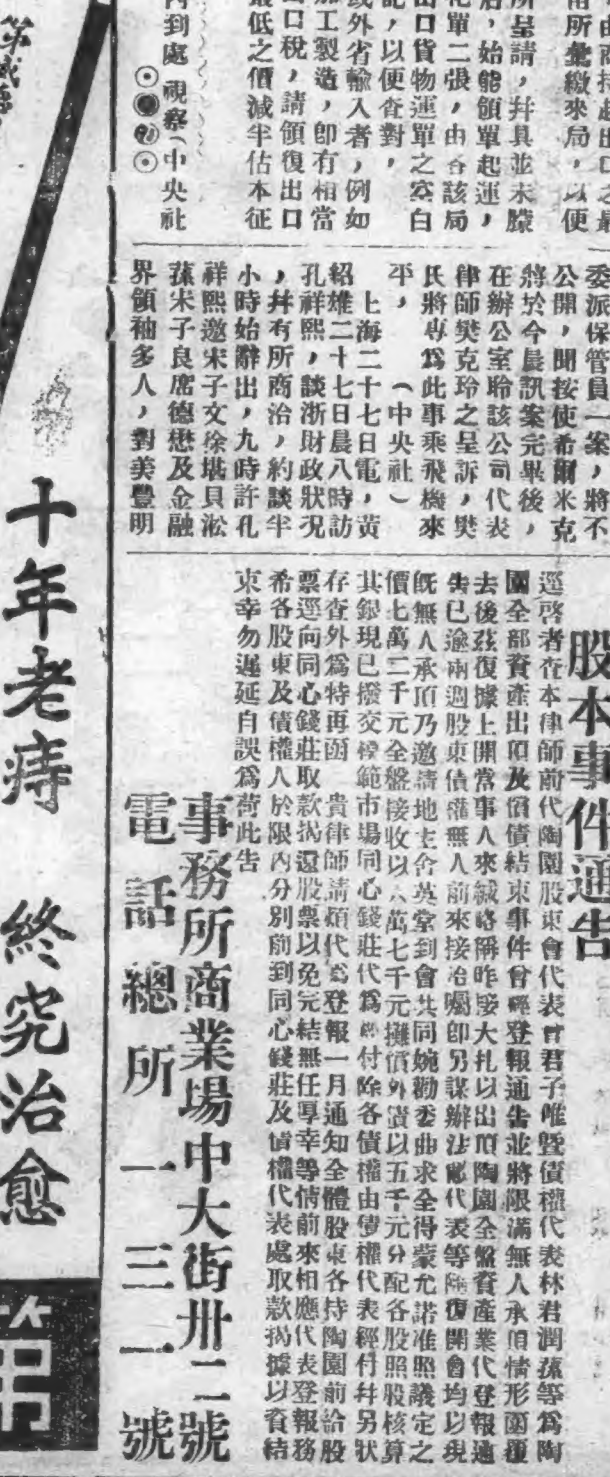 由商持赴出口之最
所彙繳來局，以便
所呈請，幷具並未朦
后，始能領單起運，
化單二張，由各該局
出口貨物運單之空白
記，以便查對，
或外省輸入者，例如
加工製造，卽有相當
口稅，請領復出口
最低之價減半估本征
內到處視察（中央社
委派保管員一案，將不
公開，聞按使希爾米克
將於今晨訊案完畢後，
在辦公室聆該公司代表
律師樊克玲之呈訴，樊
氏將專爲此事乘飛機來
平，（中央社）
上海二十七日電，黃
紹雄二十七日晨八時訪
孔祥熙，談浙財政狀况
，幷有所商洽，約談半
小時始辭出，九時許孔
祥熙邀宋子文徐堪貝淞
蓀宋子良席德懋及金融
界領袖多人，對美豐明
股本事件通告
逕啓者查本律師前代陶園股東會代表曾君子唯暨債權代表林君潤蓀等爲陶
園全部資產出頂及償債結束事件曾經登報通告並將限滿無人承頂情形函覆
去後茲復據上開當事人來緘略稱昨接大札以出頂陶園全盤資產業代登報通
告已逾兩週股東債權無人前來接洽囑卽另謀辦法 代表等 復開會均以現
旣無人承頂乃邀請地主含英堂到會共同婉勸委曲求全得蒙允諾准照議定之
價七萬二千元全盤接收以六萬七千元攤償外債以五千元分配各股照股核算
其銀現已撥交模範市場同心錢莊代爲 付除各債權由債權代表經付幷另狀
存查外爲特再函 貴律師請煩代爲登報一月通知全體股東各持陶園前給股
票逕向同心錢莊取款揭還股票以免完結無任厚幸等情前來相應代表登報務
希各股東及債權人於限內分別前到同心錢莊及債權代表處取款揭據以資結
束幸勿遲延自誤爲荷此告
事務所商業場中大街卅二號
電話總所一三二號
十年老痔 終究治愈
第